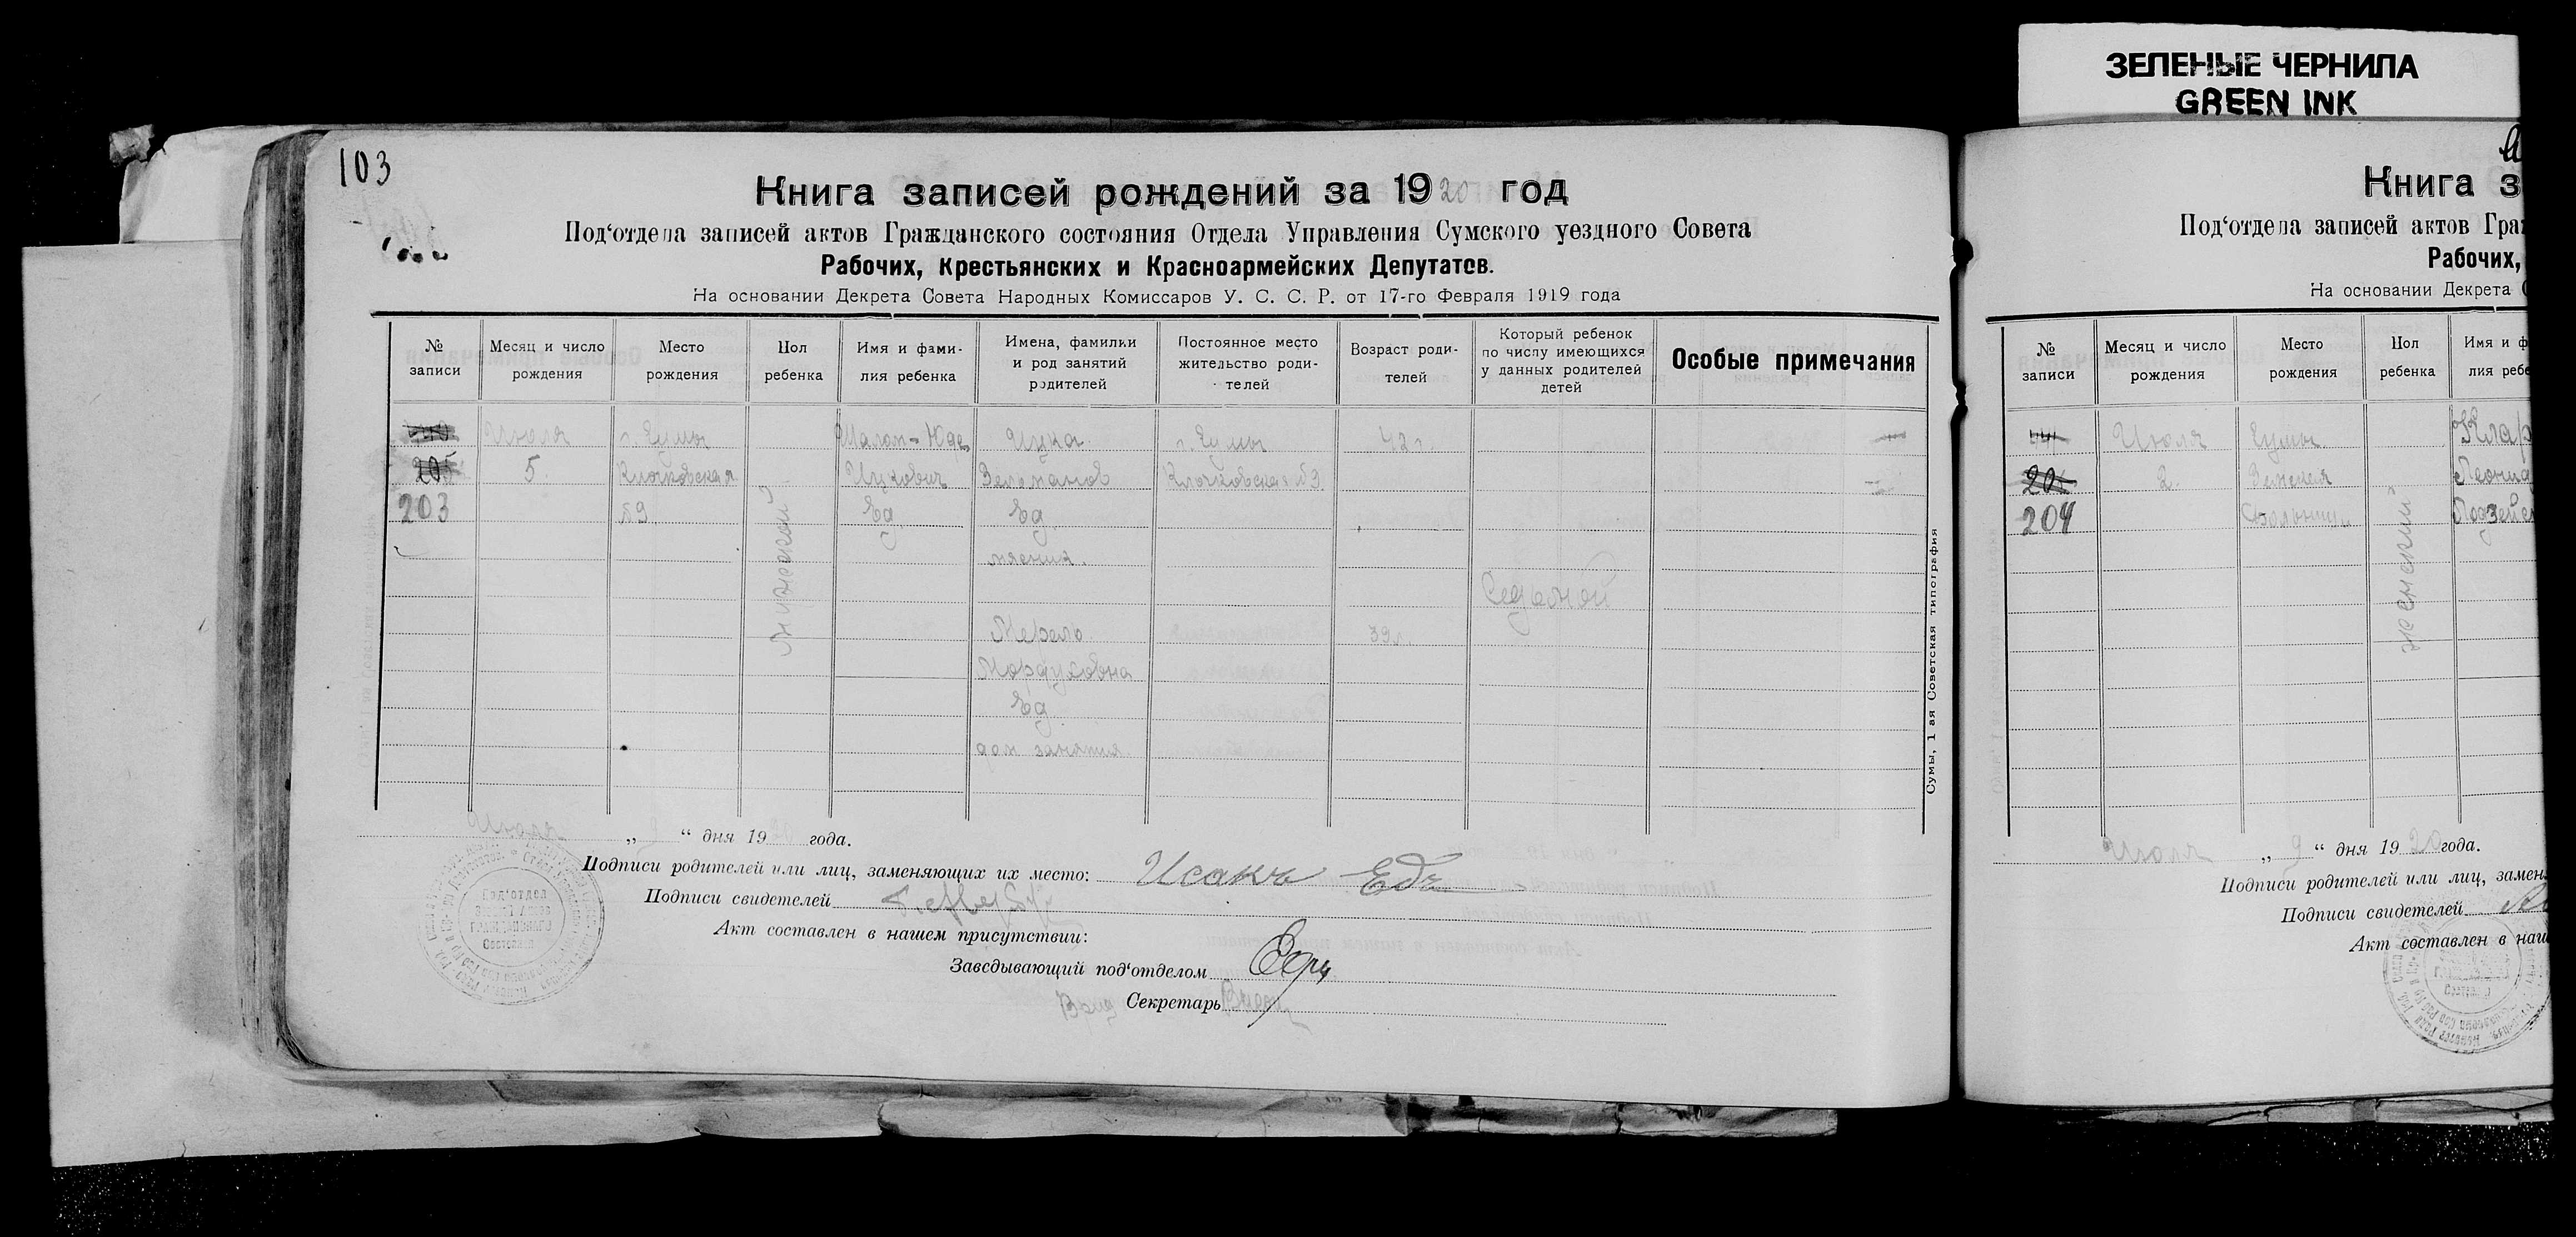 ЗЕЛЕНЫЕ ЧЕРНИЛА
GREEN INK
103
Книга записей рождений за 1920 год
Под‘отдела записей актов Гражданского состояния Отдела Управления Сумского уездного Совета
Рабочих, Крестьянских и Красноармейских Депутатов.
На основании Декрета Совета Народных Комиссаров У. С. С. Р. от 17-го Февраля 1919 года
№ записи
Месяц и число рождения
Место рождения
Пол ребенка
Имя и фами-
лия ребенка
Имена, фамилии
и род занятий
родителей
Постоянное место
жительство роди-
телей
Возраст роди-
телей
Который ребенок
по числу имеющихся
у данных родителей
детей
Особые примечания
203
Июля
5.
г. Сумы
Клочковская
№9
мужской
Шалом-Юде
Ицкович
Ед
Ицка
Зельманов
Ед
Мерель
Мордуховна
Ед
дом. занятия.
г. Сумы
Клочковская №9
42 г.
39 л.
Седьмой
Сумы, 1-ая Советская типография
Июля „ 9 “ дня 19 года.
Подписи родителей или лиц, заменяющих их место: Исакъ Едъ
Подписи свидетелей
Акт составлен в нашем присутствии:
Заведывающий под‘отделом
Врид Секретарь
Книга з
Под‘отдела записей актов Гра
Рабочих,
На основании Декрета
№ записи
Месяц и число рождения
Место рождения
Пол ребенка
Имя и ф
лия ребе
204
Июля
2.
Сумы
женский
Клар
Леонид
Июля „ 9 “ дня 1920 года.
Подписи родителей или лиц, замен
Подписи свидетелей
Акт составлен в наш